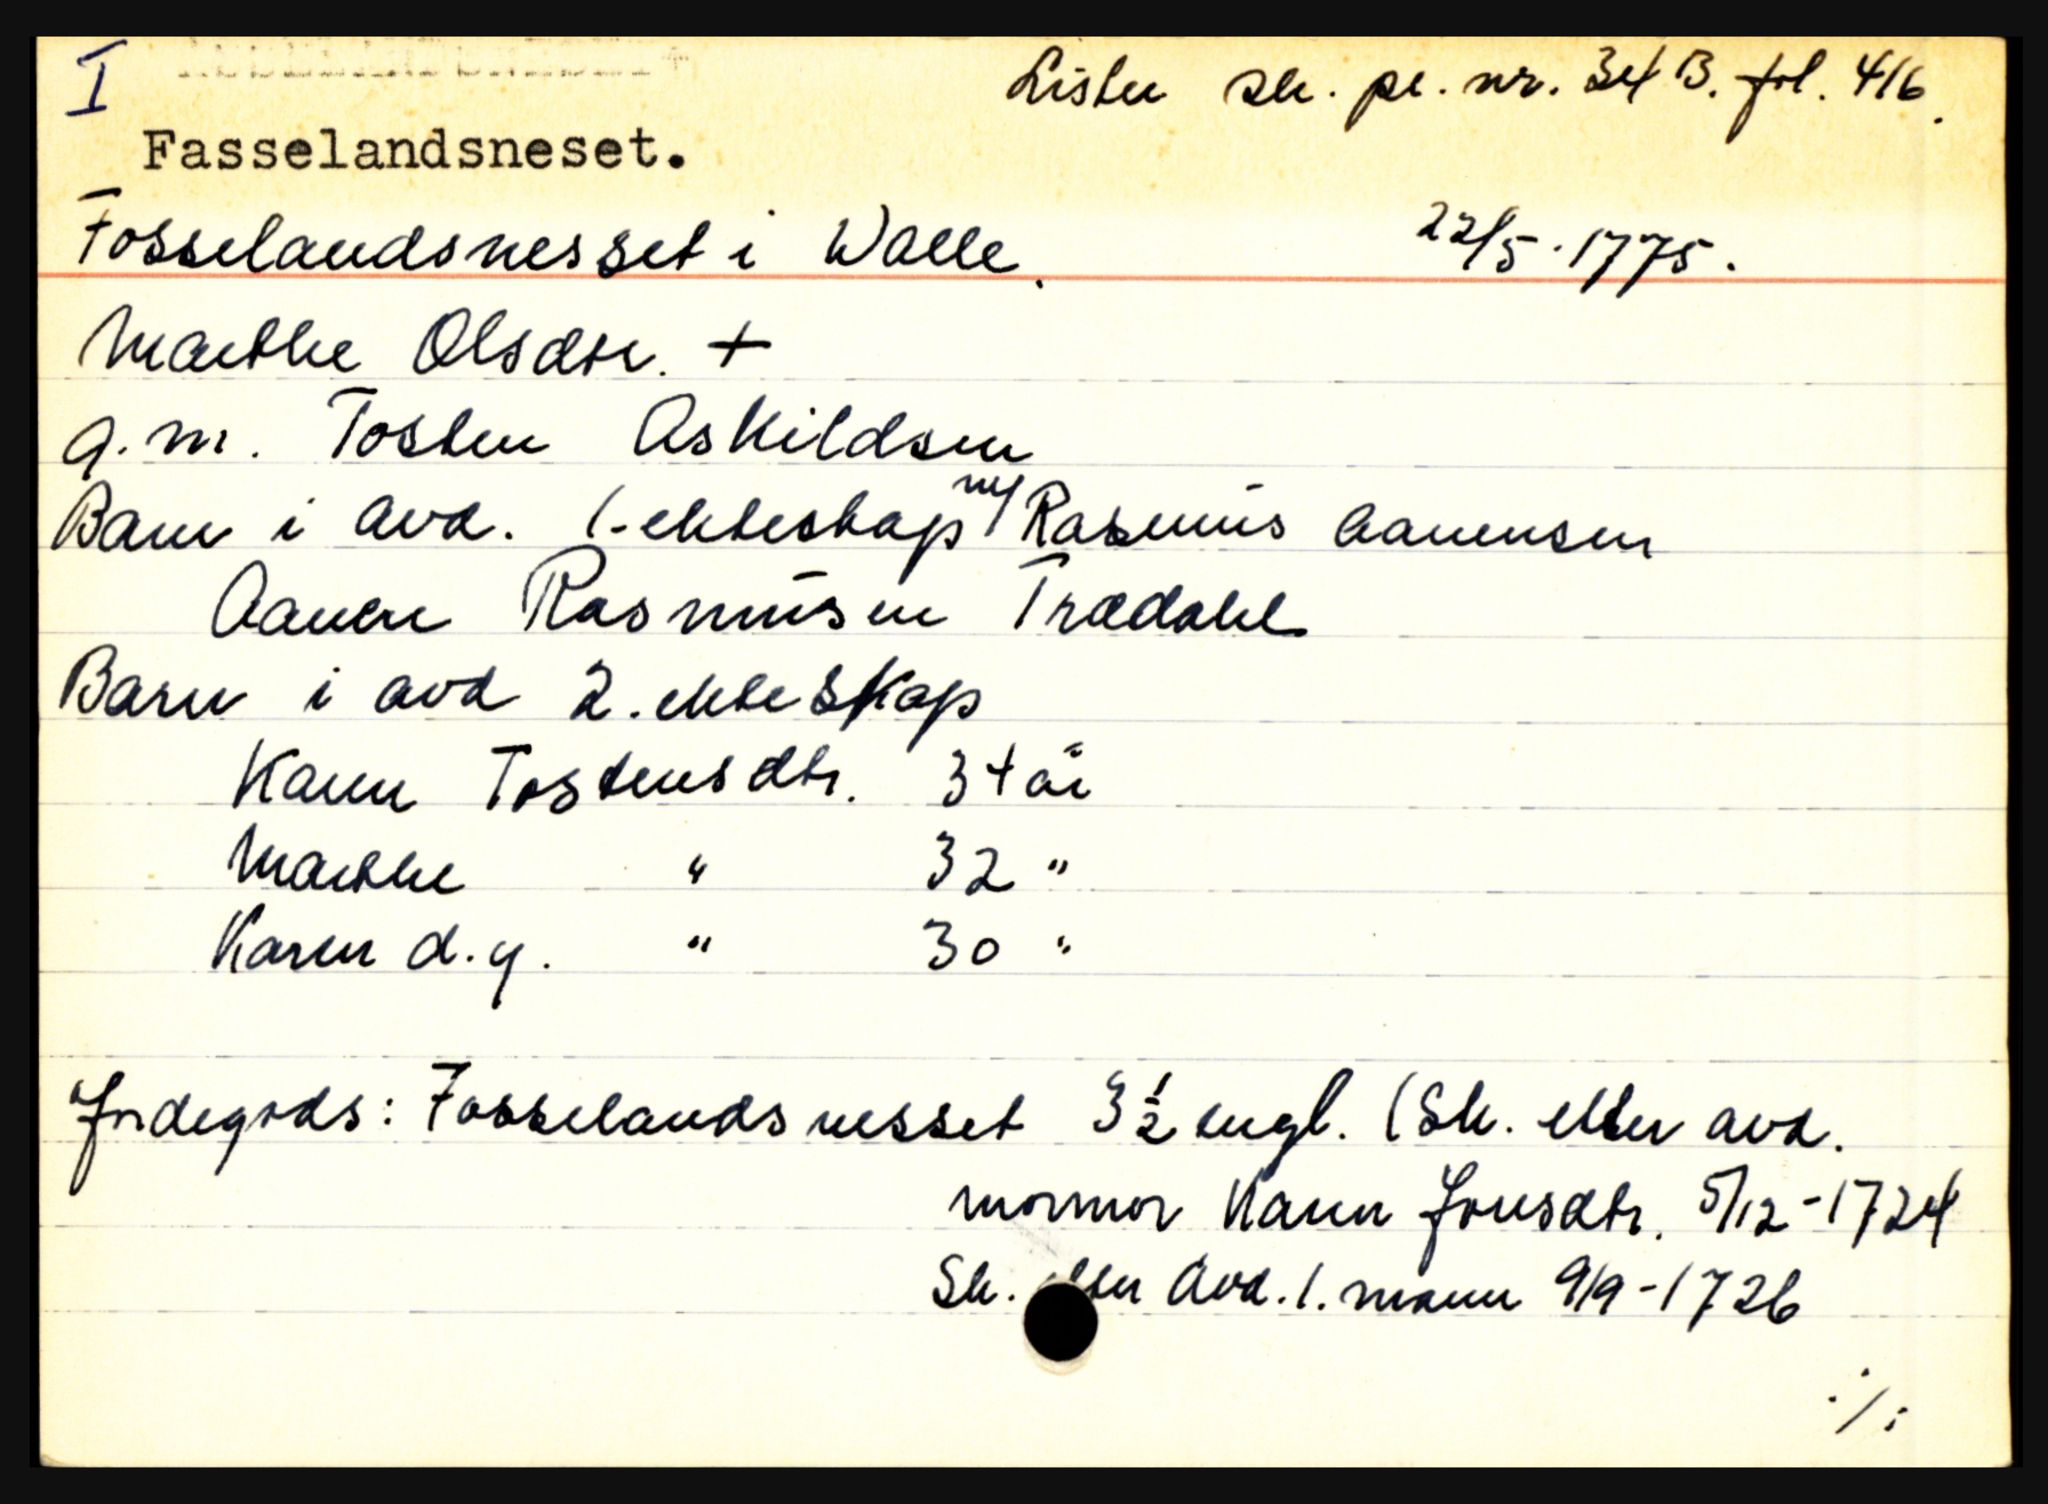 I
Lister sk. pr. nr. 34 B. fol. 416.
Fasselandsneset.
Fosselandsnesset i Walle.
22/5-1775.
Marthe Olsdtr. +
g.m. Tosten Askildsen
Barn i avd. 1-ekteskap m/ Rasmus Aanensen
Aanen Rasmusen Trædahl
Barn i avd 2. ekteskap
Karen Tostensdtr. 34 år
Marthe " 32 "
Karen d.y. " 30 "
Jordegods: Fosselandsnesset 3½ engl. (Sk. etter avd.
mormor Karen Jonsdtr. 5/12-1724
Sk. etter Avd. 1. mann 9/9-1726
./.